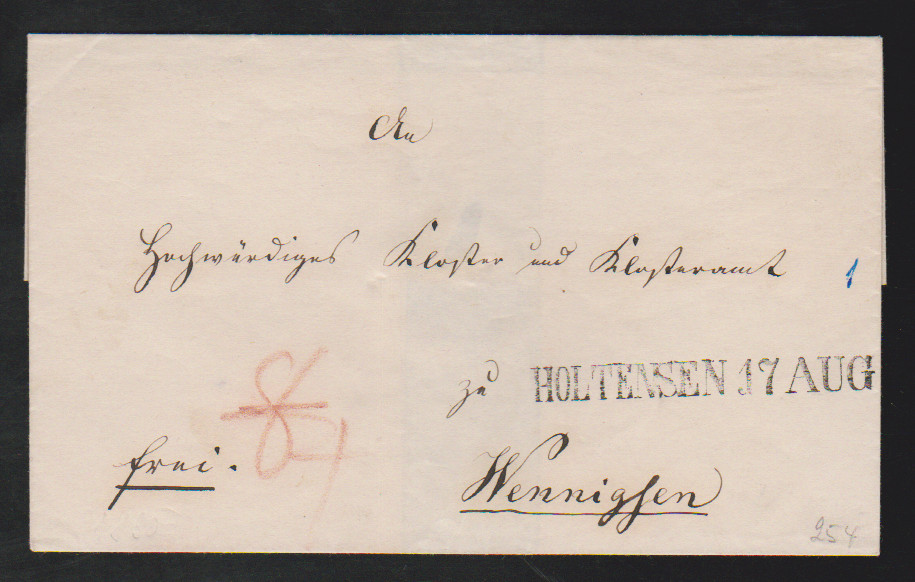 An
Hochwürdiges Kloster und Klosteramt
1
zu HOLTENSEN 17 AUG
frei.
Wennigsen
254